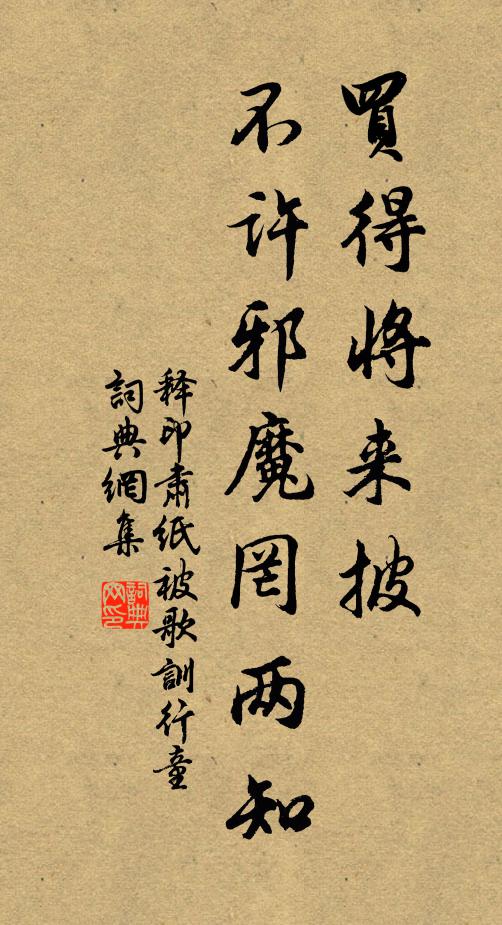 買得将来披
不许邪魔罔两知
释印肃纸被歌訓行童
詞典網集
詞典网印